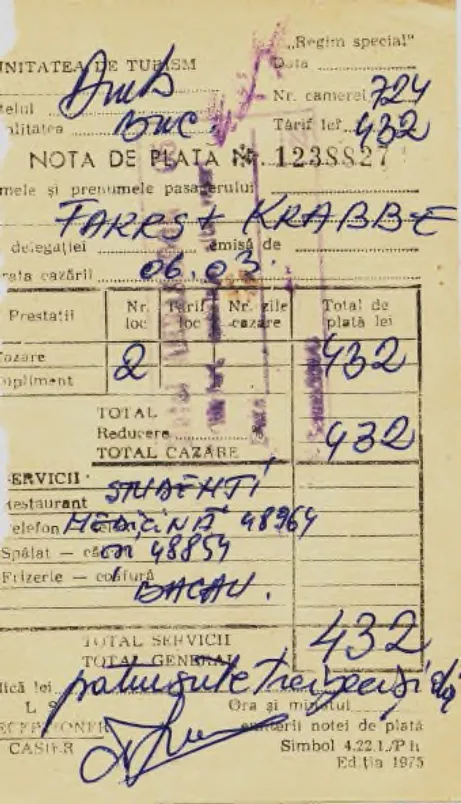 „Regim special"
UNITATEA DE TURISM Data
Amb
Nr. camerei 724
telul
alitatea BUC Tarif lei 432
NOTA DE PLATA Nr. 1238827
mele și prenumele pasagerului
FARRST KRABBE
delegației emisă de
rata cazării 06.03.
Prestații Nr. loc Tarif loc Nr. zile cazare Total de plată lei
azare 2 432
upliment
TOTAL
Reducere 432
TOTAL CAZARE
SERVICII
Restaurant STUDENȚI
elefon MEDICINĂ 48964
Spălat — că 48854
Frizerie — coafură
BACAU.
TOTAL SERVICII 432
TOTAL GENERAL
dică lei patru sute treizeci și doi
L S Ora și minutul
RECEPȚIONER emiterii notei de plată
CASIER Simbol 4.22.1./P h
Ediția 1975